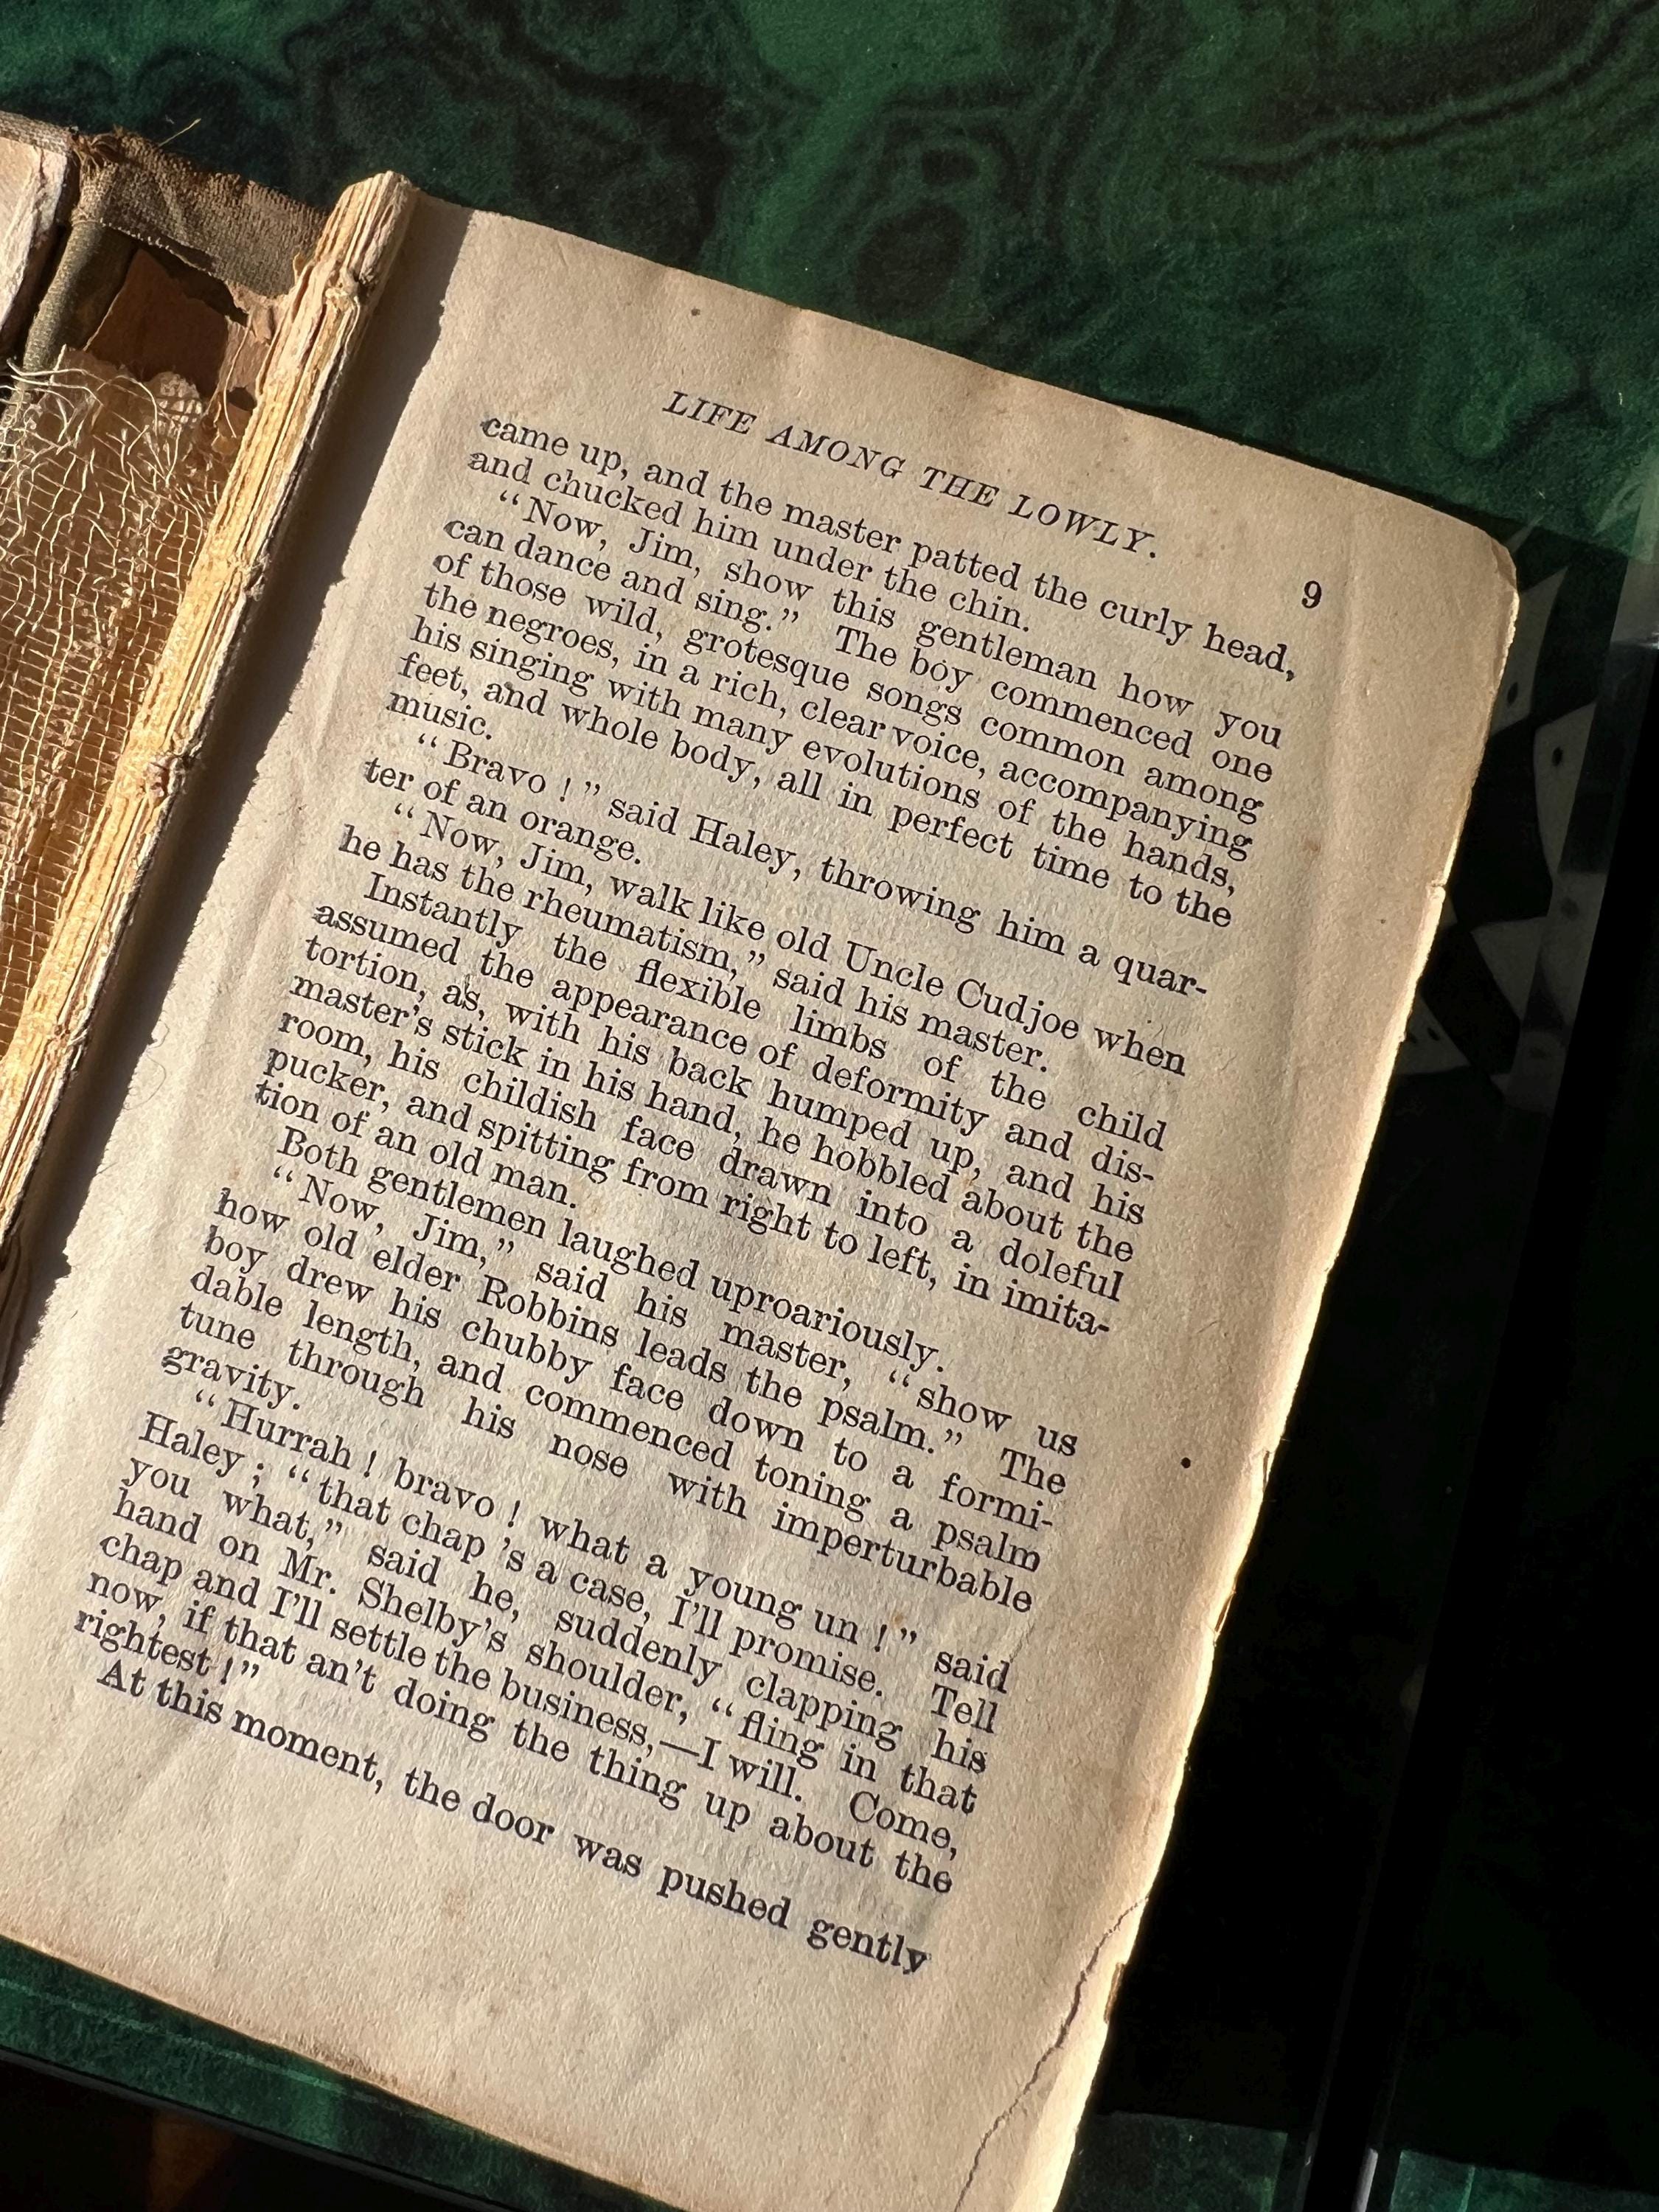 LIFE AMONG THE LOWLY. 9
came up, and the master patted the curly head,
and chucked him under the chin.
“Now, Jim, show this gentleman how you
can dance and sing.” The boy commenced one
of those wild, grotesque songs common among
the negroes, in a rich, clear voice, accompanying
his singing with many evolutions of the hands,
feet, and whole body, all in perfect time to the
music.
“Bravo!” said Haley, throwing him a quar-
ter of an orange.
“Now, Jim, walk like old Uncle Cudjoe when
he has the rheumatism,” said his master.
Instantly the flexible limbs of the child
assumed the appearance of deformity and dis-
tortion, as, with his back humped up, and his
master’s stick in his hand, he hobbled about the
room, his childish face drawn into a doleful
pucker, and spitting from right to left, in imita-
tion of an old man.
Both gentlemen laughed uproariously.
“Now, Jim,” said his master, “show us
how old elder Robbins leads the psalm.” The
boy drew his chubby face down to a formi-
dable length, and commenced toning a psalm
tune through his nose with imperturbable
gravity.
“Hurrah! bravo! what a young un!” said
Haley; “that chap ’s a case, I’ll promise. Tell
you what,” said he, suddenly clapping his
hand on Mr. Shelby’s shoulder, “fling in that
chap and I’ll settle the business,—I will. Come,
now, if that an’t doing the thing up about the
rightest!”
At this moment, the door was pushed gently